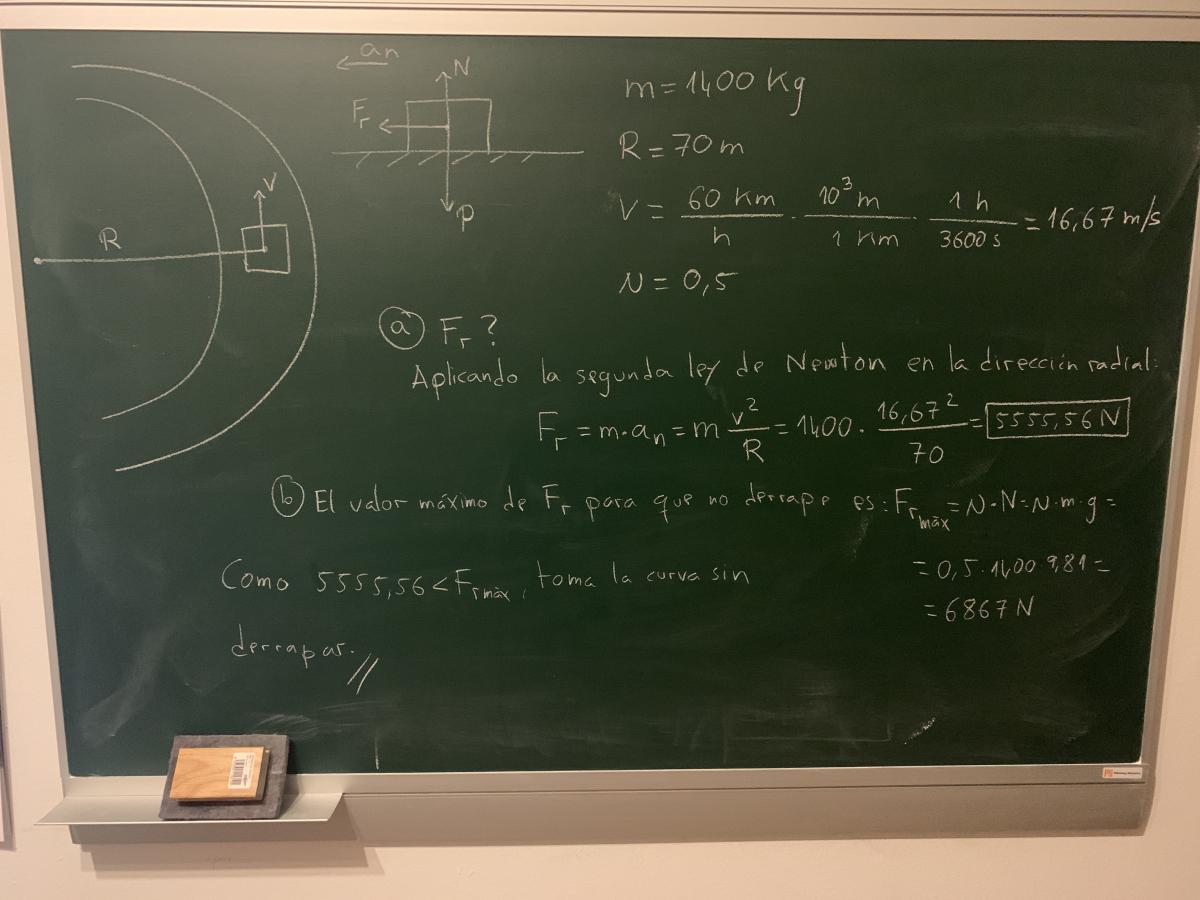 an
N
Fr
P
V
R
m = 1400 Kg
R = 70 m
V = 60 Km / h · 10³ m / 1 Km · 1 h / 3600 s = 16,67 m/s
μ = 0,5
a Fr?
Aplicando la segunda ley de Newton en la dirección radial:
Fr = m·an = m v² / R = 1400 · 16,67² / 70 = 5555,56 N
b El valor máximo de Fr para que no derrape es: Fr máx = μ·N = μ·m·g =
= 0,5·1400 9,81 =
= 6867 N
Como 5555,56 < Fr máx, toma la curva sin
derrapar.//